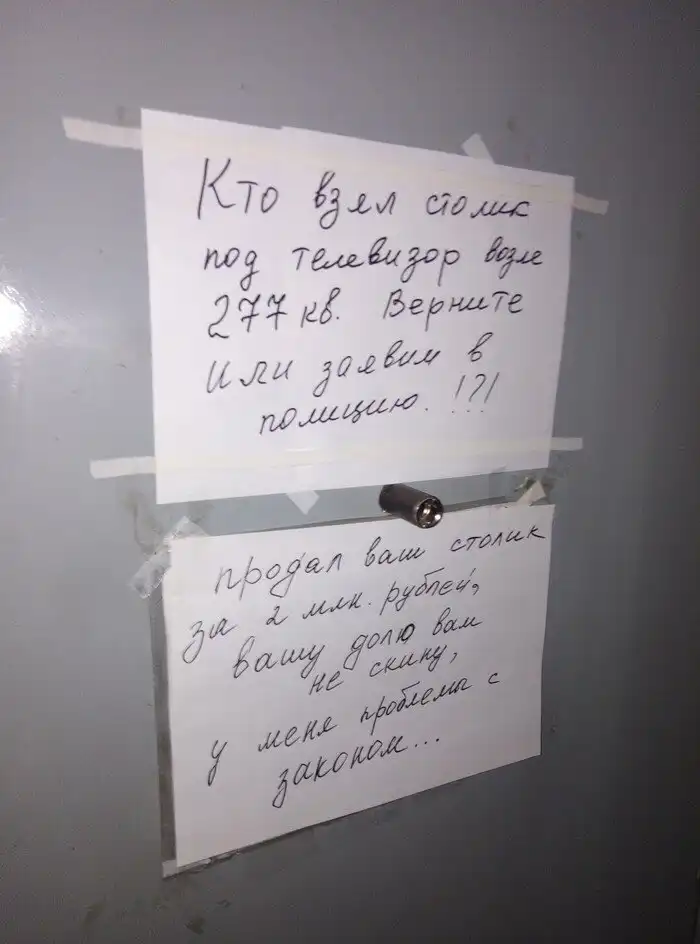 Кто взял столик
под телевизор возле
277 кв. Верните
или заявим в
полицию. !?!
продал ваш столик
за 2 млн. рублей,
вашу долю вам
не скину,
у меня проблемы с
законом...